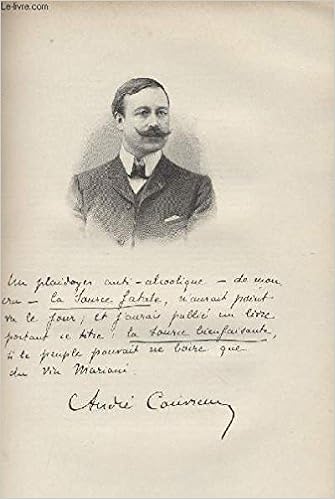 Le-livre.com
Un plaidoyer anti-alcoolique - de mon
cru - la source fatale, n'aurait point
vu le jour; et j'aurais publié un livre
portant ce titre: la source bienfaisante,
si le peuple pouvait ne boire que
du vin Mariani.
André Couvreur